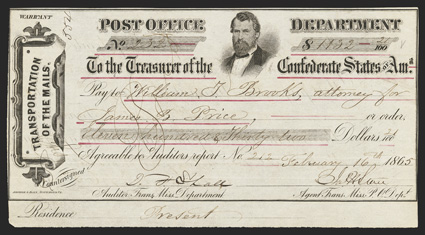 WARRANT
POST OFFICE DEPARTMENT
No. 232 $ 1132 /100
To the Treasurer of the Confederate States of Ama.
Pay to William T. Brooks, attorney for
James B. Price, or order,
Eleven hundred & thirty two Dollars
Agreeable to Auditors report No. 212 February 16th 1865
Auditor Trans. Miss. Department Agent Trans. Miss. P.O. Dept.
Residence Present
TRANSPORTATION OF THE MAILS.
Countersigned